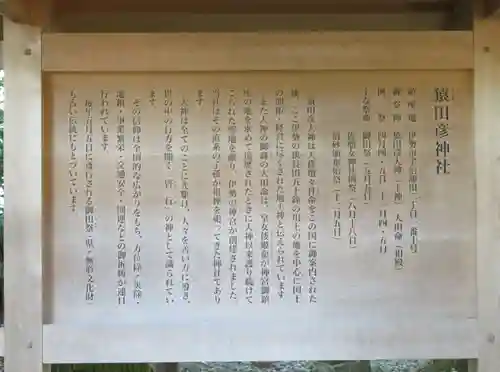 猿田彦神社
鎮座地 伊勢市宇治浦田二丁目一番十号
御祭神 猿田彦大神(主神)大田命(相殿)
例祭 四月四・五日 十一月四・五日
主な祭典 御田祭(五月五日)
佐瑠女神社例祭(八月十八日)
猿田彦大神は天孫瓊々杵命をこの国に御案内された
後、ここ伊勢の狭長田五十鈴の川上の地を中心に国土
の開拓・経営に尽された地主神と伝えられています
また大神の御裔の大田命は、皇女倭姫命が神宮御鎮
座の地を求めて巡歴されたときに大神以来守護り続けて
こられた聖地を献り、伊勢の神宮が創建されました
当社はその直系の子孫が祖神を祀ってきた神社であり
ます
大神は全てのことに先駆け、人々を善い方に導き、
世の中の行方を開く「啓(行)の神」として識られてい
ます。
その信仰は全国的な広がりをもち、方位除・災除・
地鎮・事業繁栄・交通安全・開運などの御祈祷が連日
行われています。
毎年五月五日に斎行される御田祭(県・無形文化財)
もふるい伝統にもとづいています。